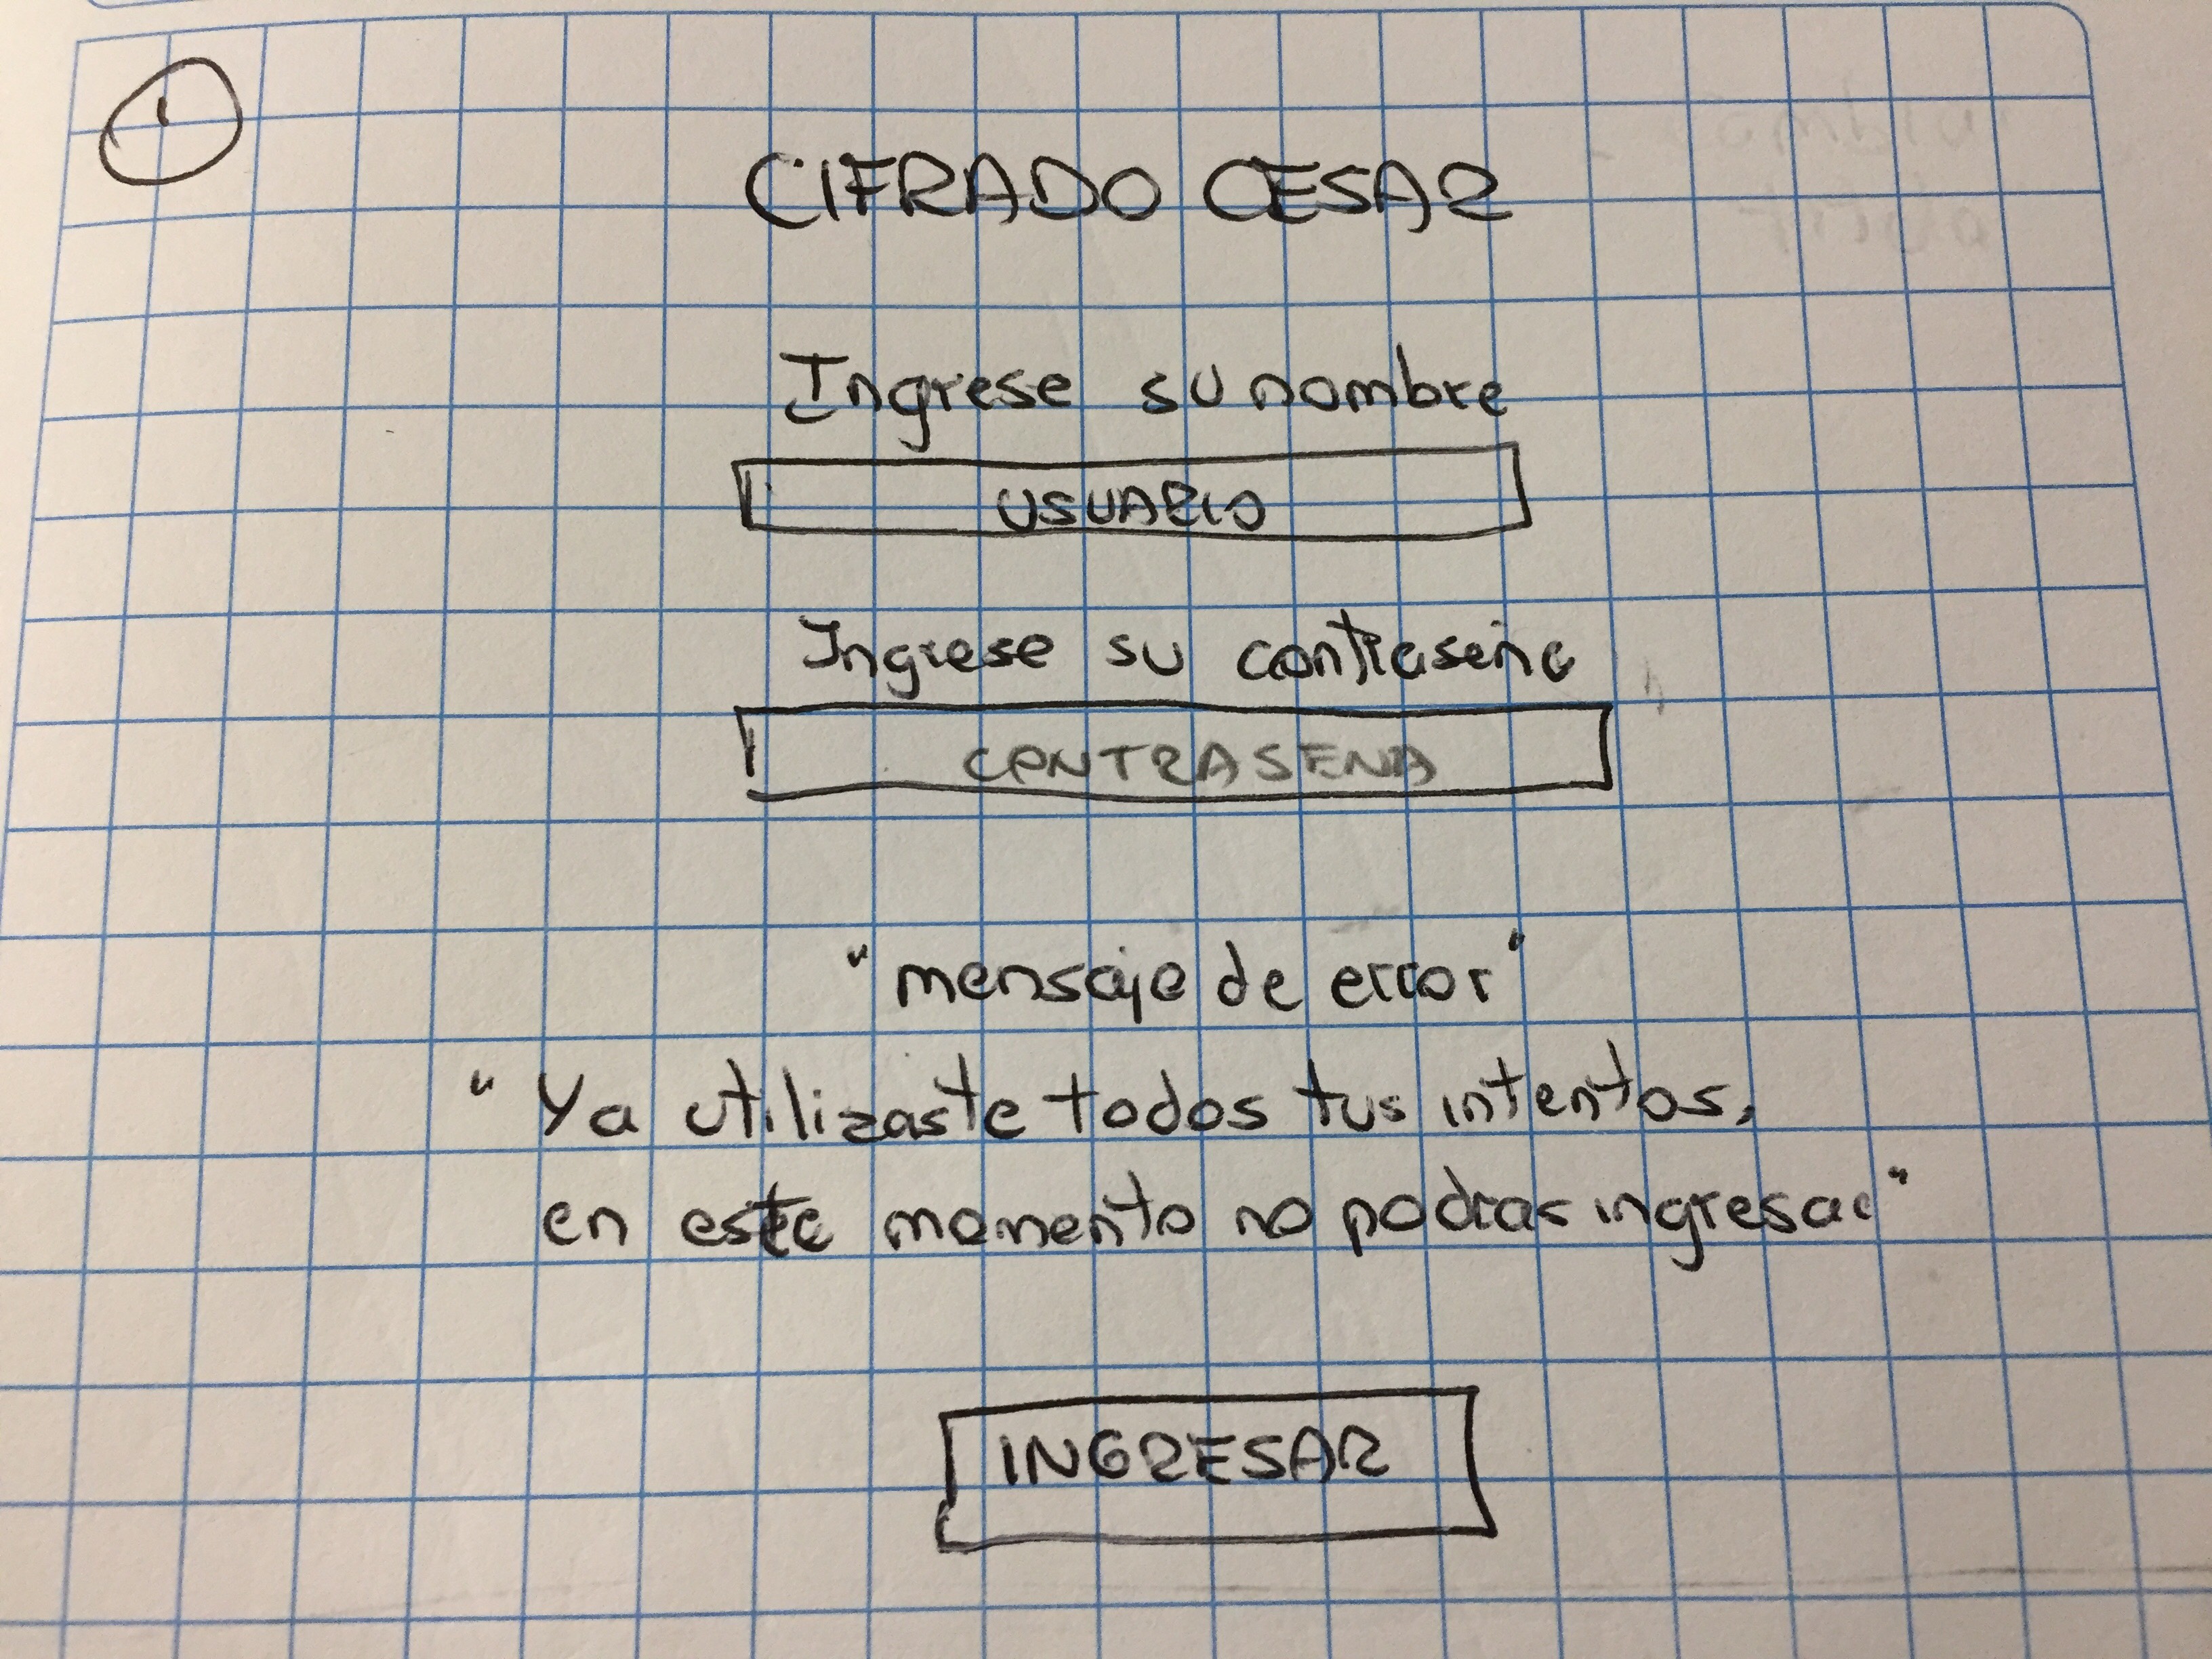 1
CIFRADO CESAR
Ingrese su nombre
USUARIO
Ingrese su contraseña
CONTRASENA
"mensaje de error"
"Ya utilizaste todos tus intentos,
en este momento no podras ingresar"
INGRESAR